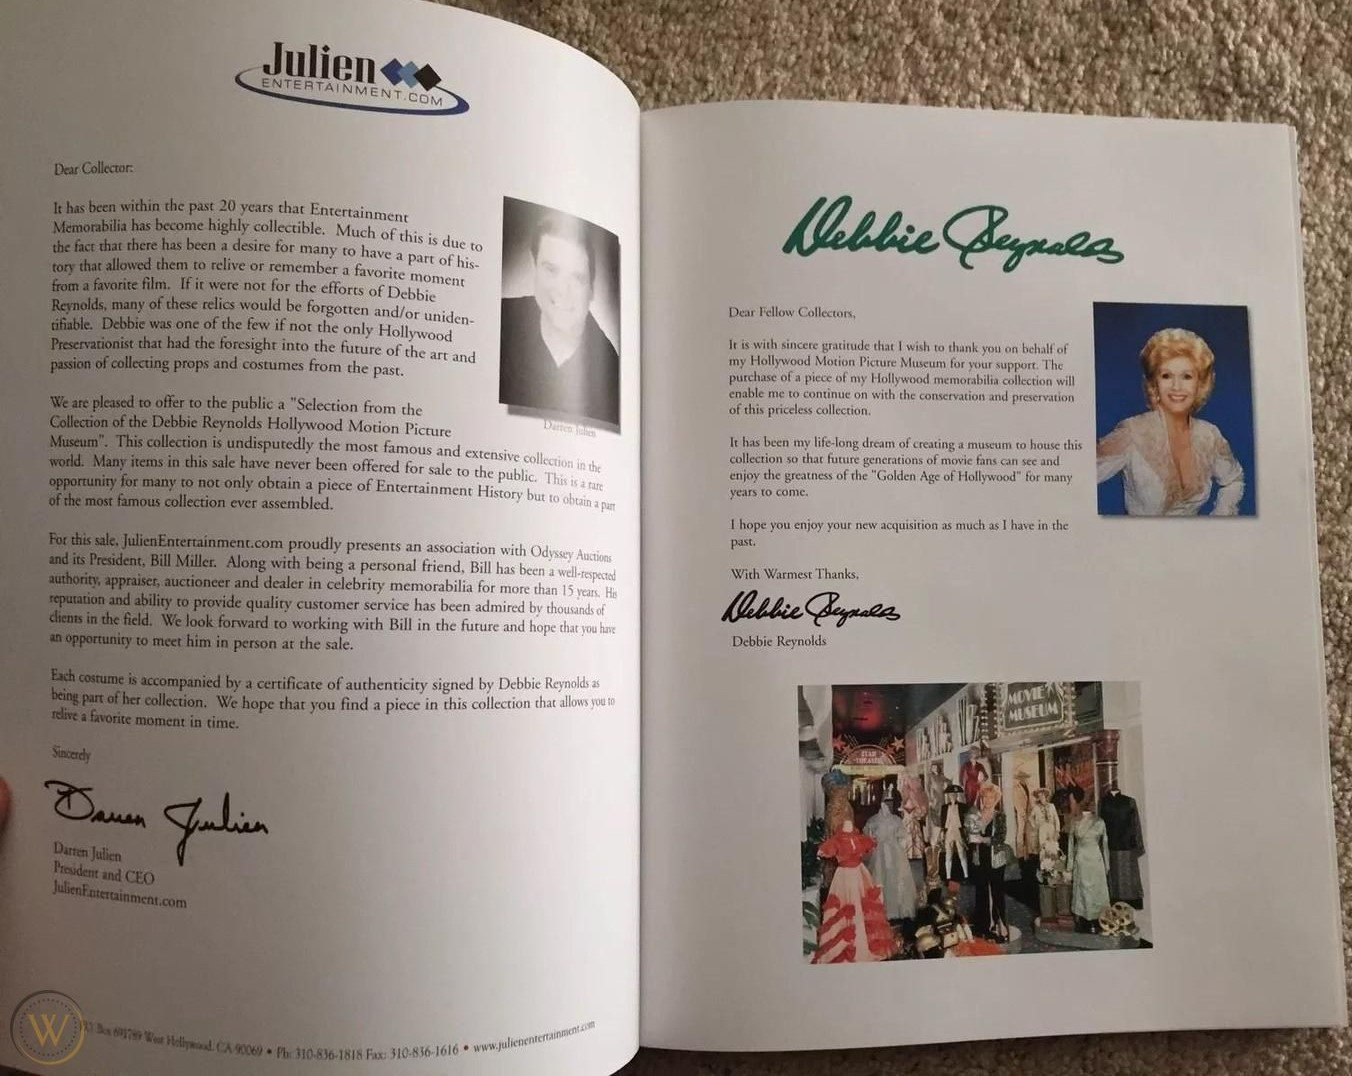 Julien
ENTERTAINMENT.COM
Dear Collector:
It has been within the past 20 years that Entertainment
Memorabilia has become highly collectible. Much of this is due to
the fact that there has been a desire for many to have a part of his-
tory that allowed them to relive or remember a favorite moment
from a favorite film. If it were not for the efforts of Debbie
Reynolds, many of these relics would be forgotten and/or uniden-
tifiable. Debbie was one of the few if not the only Hollywood
Preservationist that had the foresight into the future of the art and
passion of collecting props and costumes from the past.
Darren Julien
We are pleased to offer to the public a "Selection from the
Collection of the Debbie Reynolds Hollywood Motion Picture
Museum". This collection is undisputedly the most famous and extensive collection in the
world. Many items in this sale have never been offered for sale to the public. This is a rare
opportunity for many to not only obtain a piece of Entertainment History but to obtain a part
of the most famous collection ever assembled.
For this sale, JulienEntertainment.com proudly presents an association with Odyssey Auctions
and its President, Bill Miller. Along with being a personal friend, Bill has been a well-respected
authority, appraiser, auctioneer and dealer in celebrity memorabilia for more than 15 years. His
reputation and ability to provide quality customer service has been admired by thousands of
clients in the field. We look forward to working with Bill in the future and hope that you have
an opportunity to meet him in person at the sale.
Each costume is accompanied by a certificate of authenticity signed by Debbie Reynolds as
being part of her collection. We hope that you find a piece in this collection that allows you to
relive a favorite moment in time.
Sincerely
Darren Julien
Darren Julien
President and CEO
JulienEntertainment.com
Box 691789 West Hollywood, CA 90069 • Ph: 310-836-1818 Fax: 310-836-1616 • www.julienentertainment.com
W
Debbie Reynolds
Dear Fellow Collectors,
It is with sincere gratitude that I wish to thank you on behalf of
my Hollywood Motion Picture Museum for your support. The
purchase of a piece of my Hollywood memorabilia collection will
enable me to continue on with the conservation and preservation
of this priceless collection.
It has been my life-long dream of creating a museum to house this
collection so that future generations of movie fans can see and
enjoy the greatness of the "Golden Age of Hollywood" for many
years to come.
I hope you enjoy your new acquisition as much as I have in the
past.
With Warmest Thanks,
Debbie Reynolds
Debbie Reynolds
MOVIE
MUSEUM
STAR
THEATRE